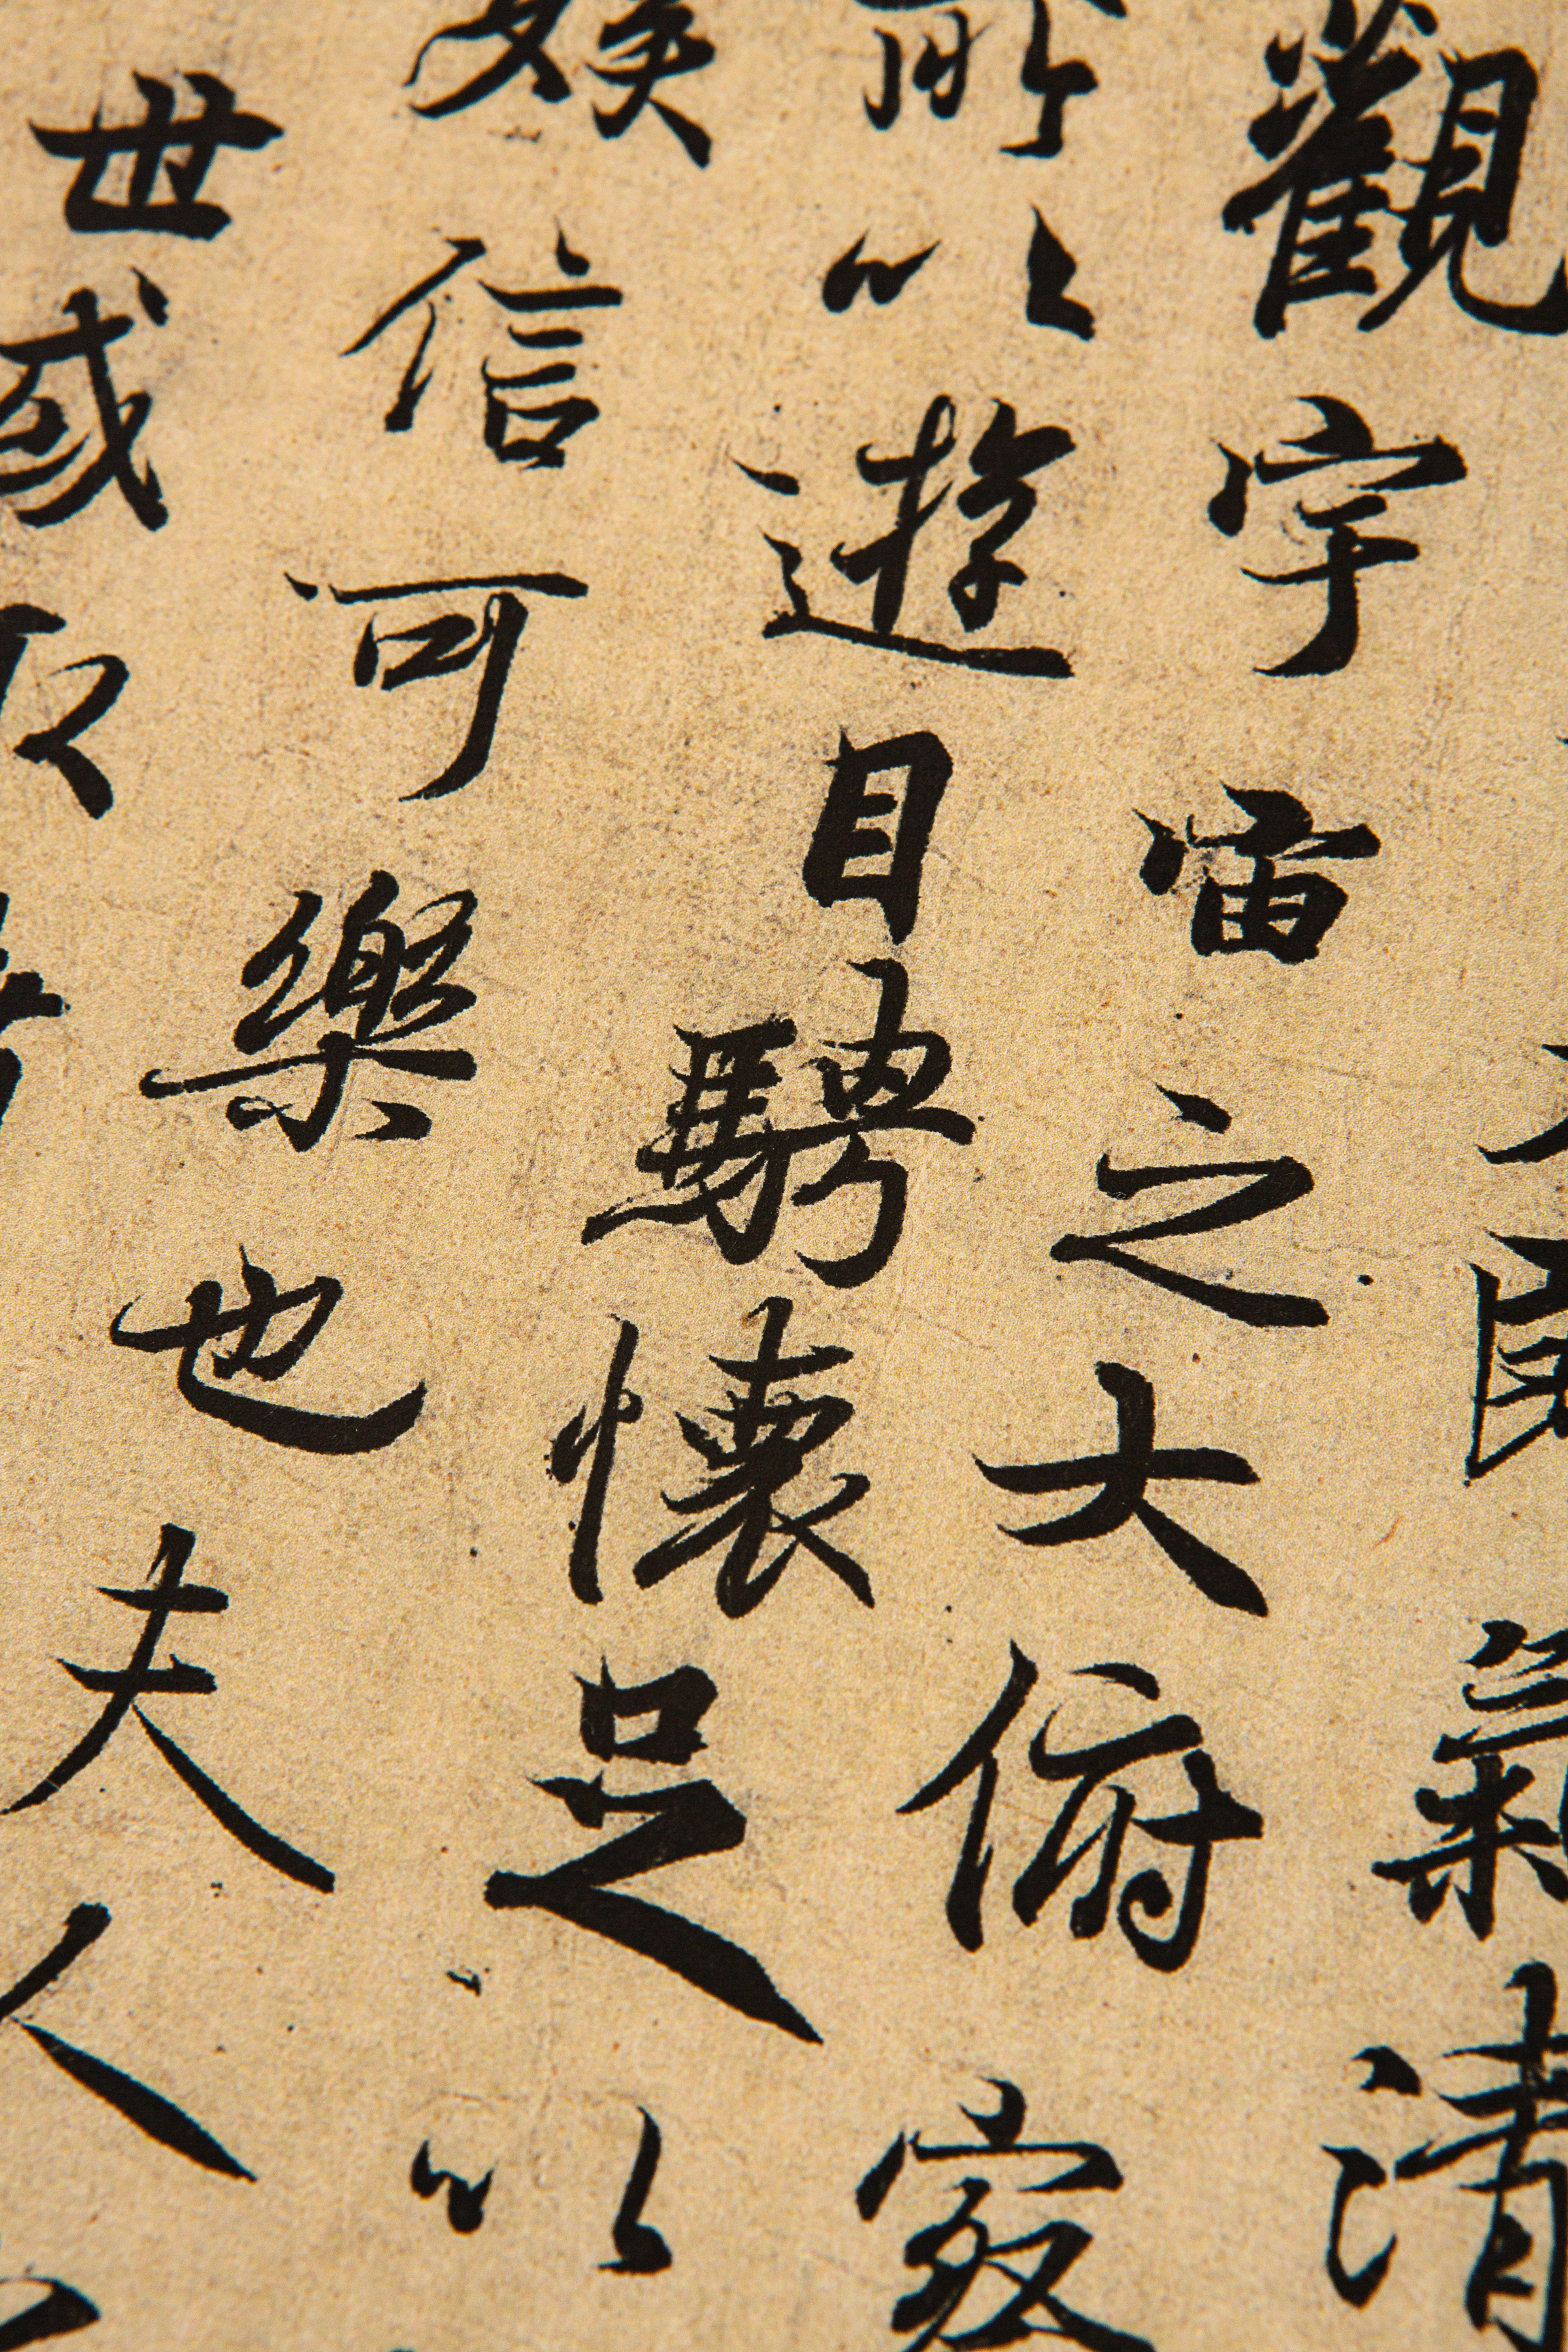 氣清
觀宇宙之大俯察
所以遊目騁懷足以
娛信可樂也夫人
世或取